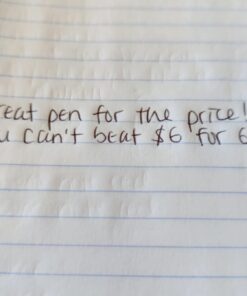 eat pen for the price!
u can't beat $6 for 6